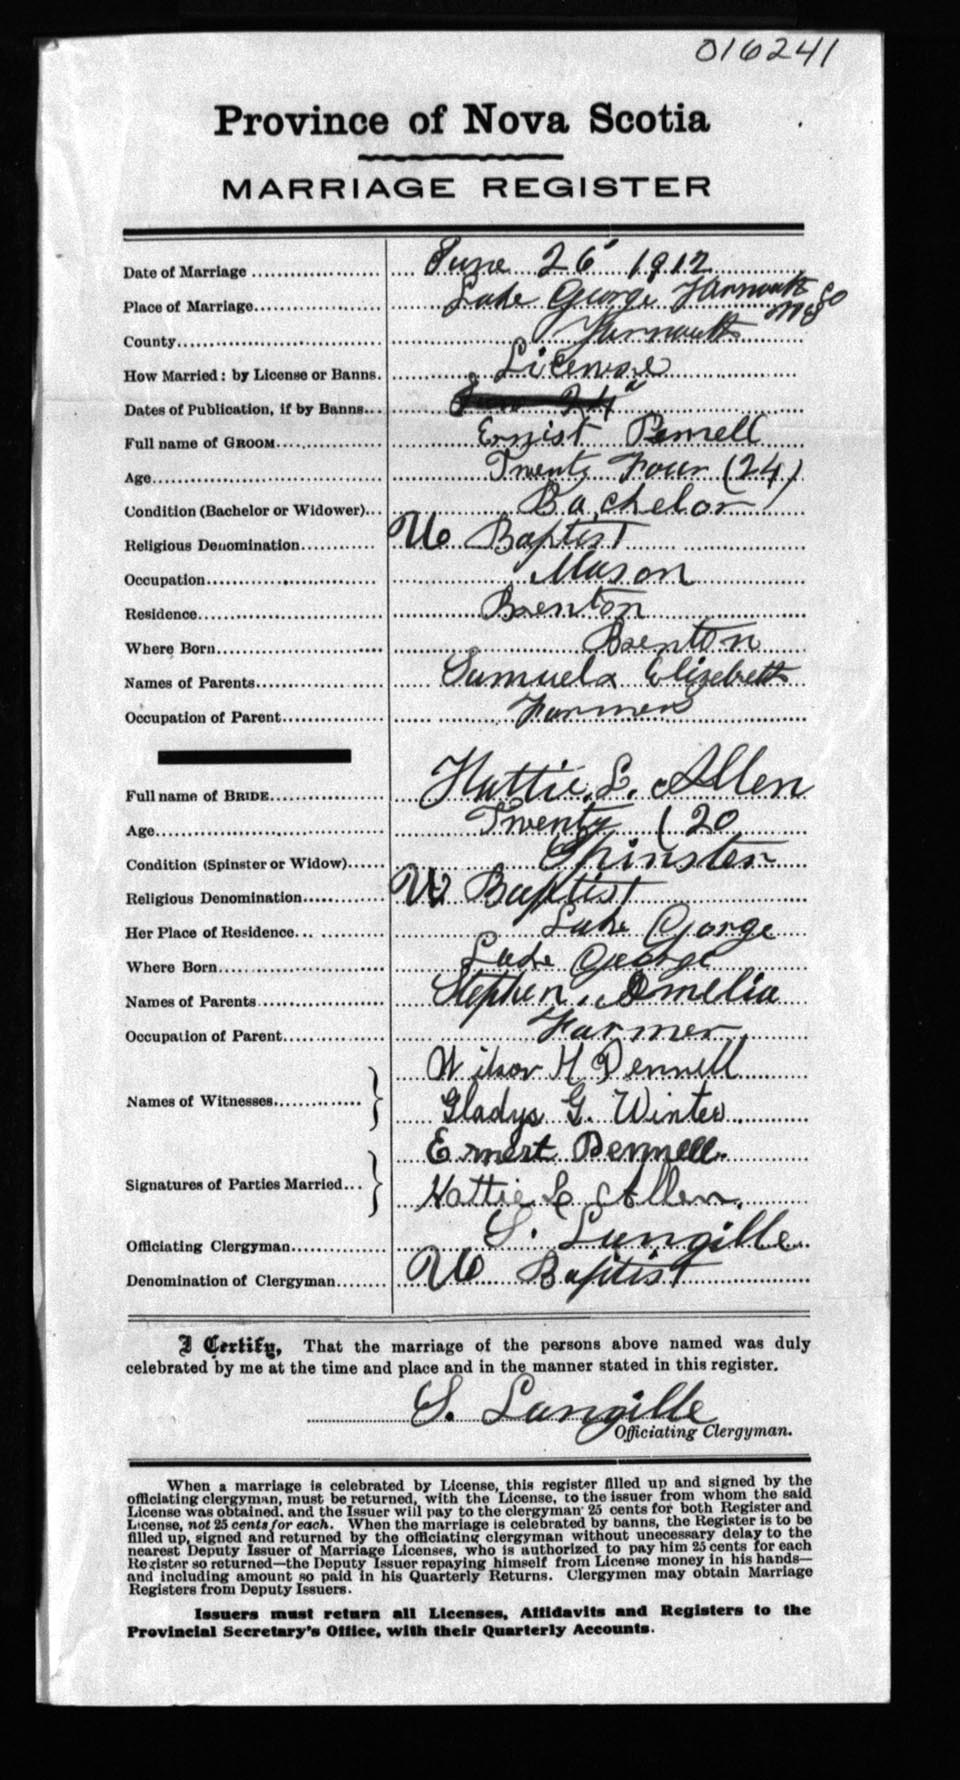 016241
Province of Nova Scotia
MARRIAGE REGISTER
Date of Marriage June 26 1912
Place of Marriage Lake George Yarmouth Co
County Yarmouth
How Married: by License or Banns. License
Dates of Publication, if by Banns
Full name of GROOM Ernist
Age Twenty Four (24)
Condition (Bachelor or Widower) Bachelor
Religious Denomination U Baptist
Occupation Mason
Residence Brenton
Where Born Brenton
Names of Parents Samuel & Elizebeth
Occupation of Parent Farmer
Full name of BRIDE Hattie. L. Allen
Age Twenty (20
Condition (Spinster or Widow) Spinster
Religious Denomination U Baptist
Her Place of Residence Lake Gorge
Where Born Lake George
Names of Parents Stephen. Amelia
Occupation of Parent Farmer
Wilson H
Names of Witnesses
Gladys G. Winter
Ernest
Signatures of Parties Married
Hattie L Allen.
Officiating Clergyman S. Langille
Denomination of Clergyman U Baptist
I Certify, That the marriage of the persons above named was duly
celebrated by me at the time and place and in the manner stated in this register.
S. Langille
Officiating Clergyman.
When a marriage is celebrated by License, this register filled up and signed by the
officiating clergyman, must be returned, with the License, to the issuer from whom the said
License was obtained, and the Issuer will pay to the clergyman 25 cents for both Register and
License, not 25 cents for each. When the marriage is celebrated by banns, the Register is to be
filled up, signed and returned by the officiating clergyman without unnecessary delay to the
nearest Deputy Issuer of Marriage Licenses, who is authorized to pay him 25 cents for each
Register so returned—the Deputy Issuer repaying himself from License money in his hands—
and including amount so paid in his Quarterly Returns. Clergymen may obtain Marriage
Registers from Deputy Issuers.
Issuers must return all Licenses, Affidavits and Registers to the
Provincial Secretary's Office, with their Quarterly Accounts.